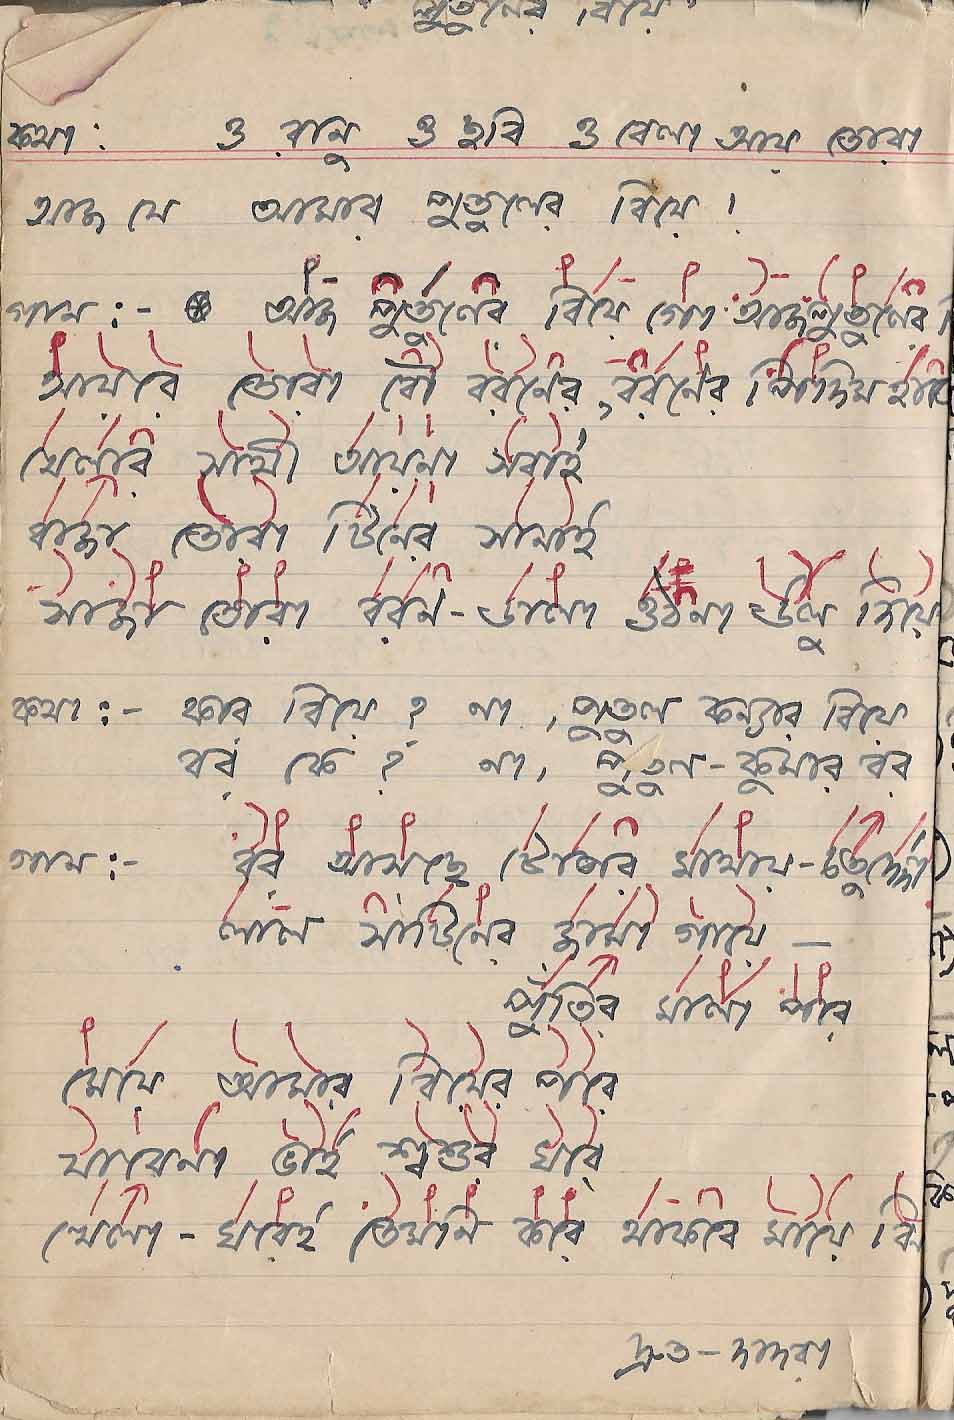 পুতুলের বিয়ে
কথা : ও রানু ও ছবি ও বেলা আয় তোরা
আজ যে আমার পুতুলের বিয়ে ।
গান :- আজ পুতুলের বিয়ে গো আজ পুতুলের
আয়রে তোরা বৌ বরণের, বরণের পিদিম
খেলার সাথী আয়না সবাই
বাজা তোরা টিনের সানাই
সাজা তোরা বরন-ডালা ওঠনা উলু দিয়ে
কথা :- কার বিয়ে ? না, পুতুল কন্যার বিয়ে
বর কে ? না, পুতুল-কুমার বর
গান :- বর আসছে টোপর মাথায়-
লাল সাটিনের জামা গায়ে —
পুঁতির মালা পরে
মেয়ে আমার বিয়ের পরে
যাবেনা ভাই শ্বশুর ঘরে
খেলা-ঘরেই তেমনি করে থাকবে মায়ে
দ্রুত-দাদরা